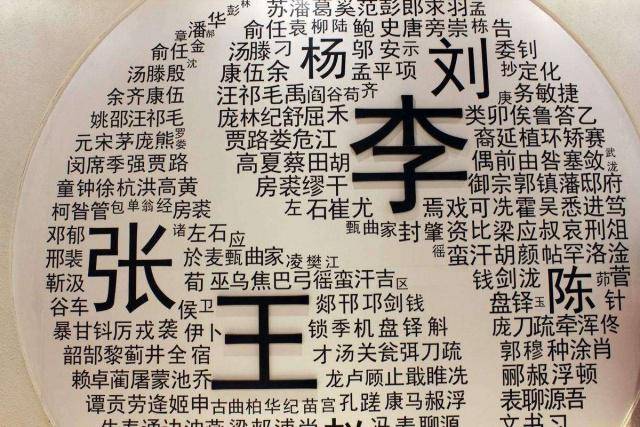 苏潘葛奚范彭郎求羽孟
潘华彭林
俞任袁柳陆鲍史唐旁崇栋告
章金
俞任
汤滕刁杨邬安示刘委钊
汤滕殷沈
康伍余孟平项抄定化
余齐康伍
汪祁毛禹阎谷荀齐庚务敏捷
姚邵汪祁毛
庞林纪舒屈禾李类卯俟鲁答乙
元宋茅庞熊罗娄
贾路娄危江裔延植环矫赛
闵席季强贾路
高夏蔡田胡偶前由昝塞敛武泷
童钟徐杭洪高黄
房裘缪干御宗郭镇藩邸府
柯昝管包单翁经房裘
左石崔尤焉戏可冼霍吴悉进笃
甄曲家封肇资比梁应叔哀刑俎
邓郁张诸左石应
徭蛮汗胡颜帖罕洛淦
邢裴於麦甄曲家凌樊江
钱剑泷陈茆菅
靳汲荀巫乌焦巴弓徭蛮汗吉区
盘铎玉针
谷车侯卫王郯邗邛剑钱
暴甘钭厉戎袭伊卜锁季机盘铎斛
庞刀疏牵浑佟
韶郜黎蓟井全宿才汤关瓮弭刀疏
郭穆种涂肖
赖卓蔺屠蒙池乔龙卢顾止戢睢冼
郦郝浮顿
谭贡劳逄姬申古曲柏华纪苗宫孔蹉康马郝浮
表聊源吾